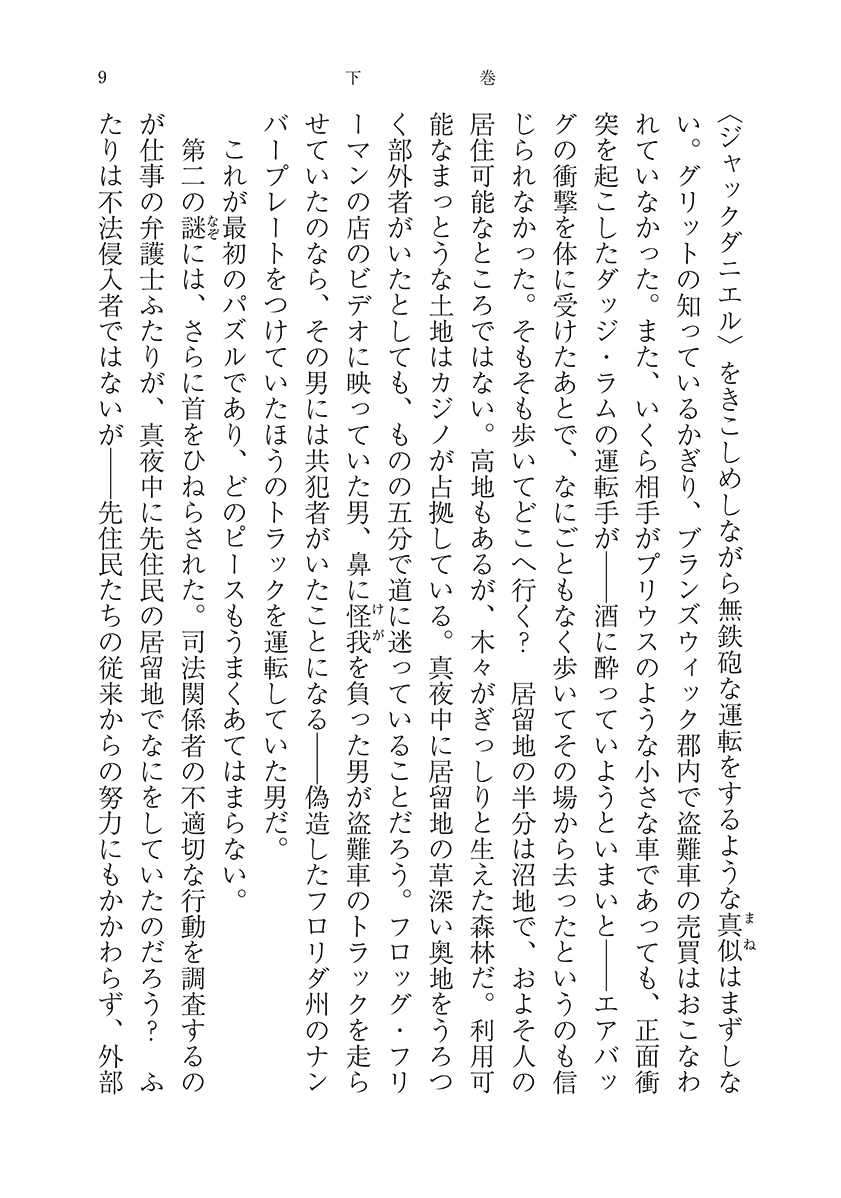 9
下巻
〈ジャックダニエル〉をきこしめしながら無鉄砲な運転をするような真似はまずしな
い。グリットの知っているかぎり、ブランズウィック郡内で盗難車の売買はおこなわ
れていなかった。また、いくら相手がプリウスのような小さな車であっても、正面衝
突を起こしたダッジ・ラムの運転手が――酒に酔っていようといまいと――エアバッ
グの衝撃を体に受けたあとで、なにごともなく歩いてその場から去ったというのも信
じられなかった。そもそも歩いてどこへ行く？　居留地の半分は沼地で、およそ人の
居住可能なところではない。高地もあるが、木々がぎっしりと生えた森林だ。利用可
能なまっとうな土地はカジノが占拠している。真夜中に居留地の草深い奥地をうろつ
く部外者がいたとしても、ものの五分で道に迷っていることだろう。フロッグ・フリ
ーマンの店のビデオに映っていた男、鼻に怪我を負った男が盗難車のトラックを走ら
せていたのなら、その男には共犯者がいたことになる――偽造したフロリダ州のナン
バープレートをつけていたほうのトラックを運転していた男だ。
これが最初のパズルであり、どのピースもうまくあてはまらない。
第二の謎には、さらに首をひねらされた。司法関係者の不適切な行動を調査するの
が仕事の弁護士ふたりが、真夜中に先住民の居留地でなにをしていたのだろう？　ふ
たりは不法侵入者ではないが――先住民たちの従来からの努力にもかかわらず、外部